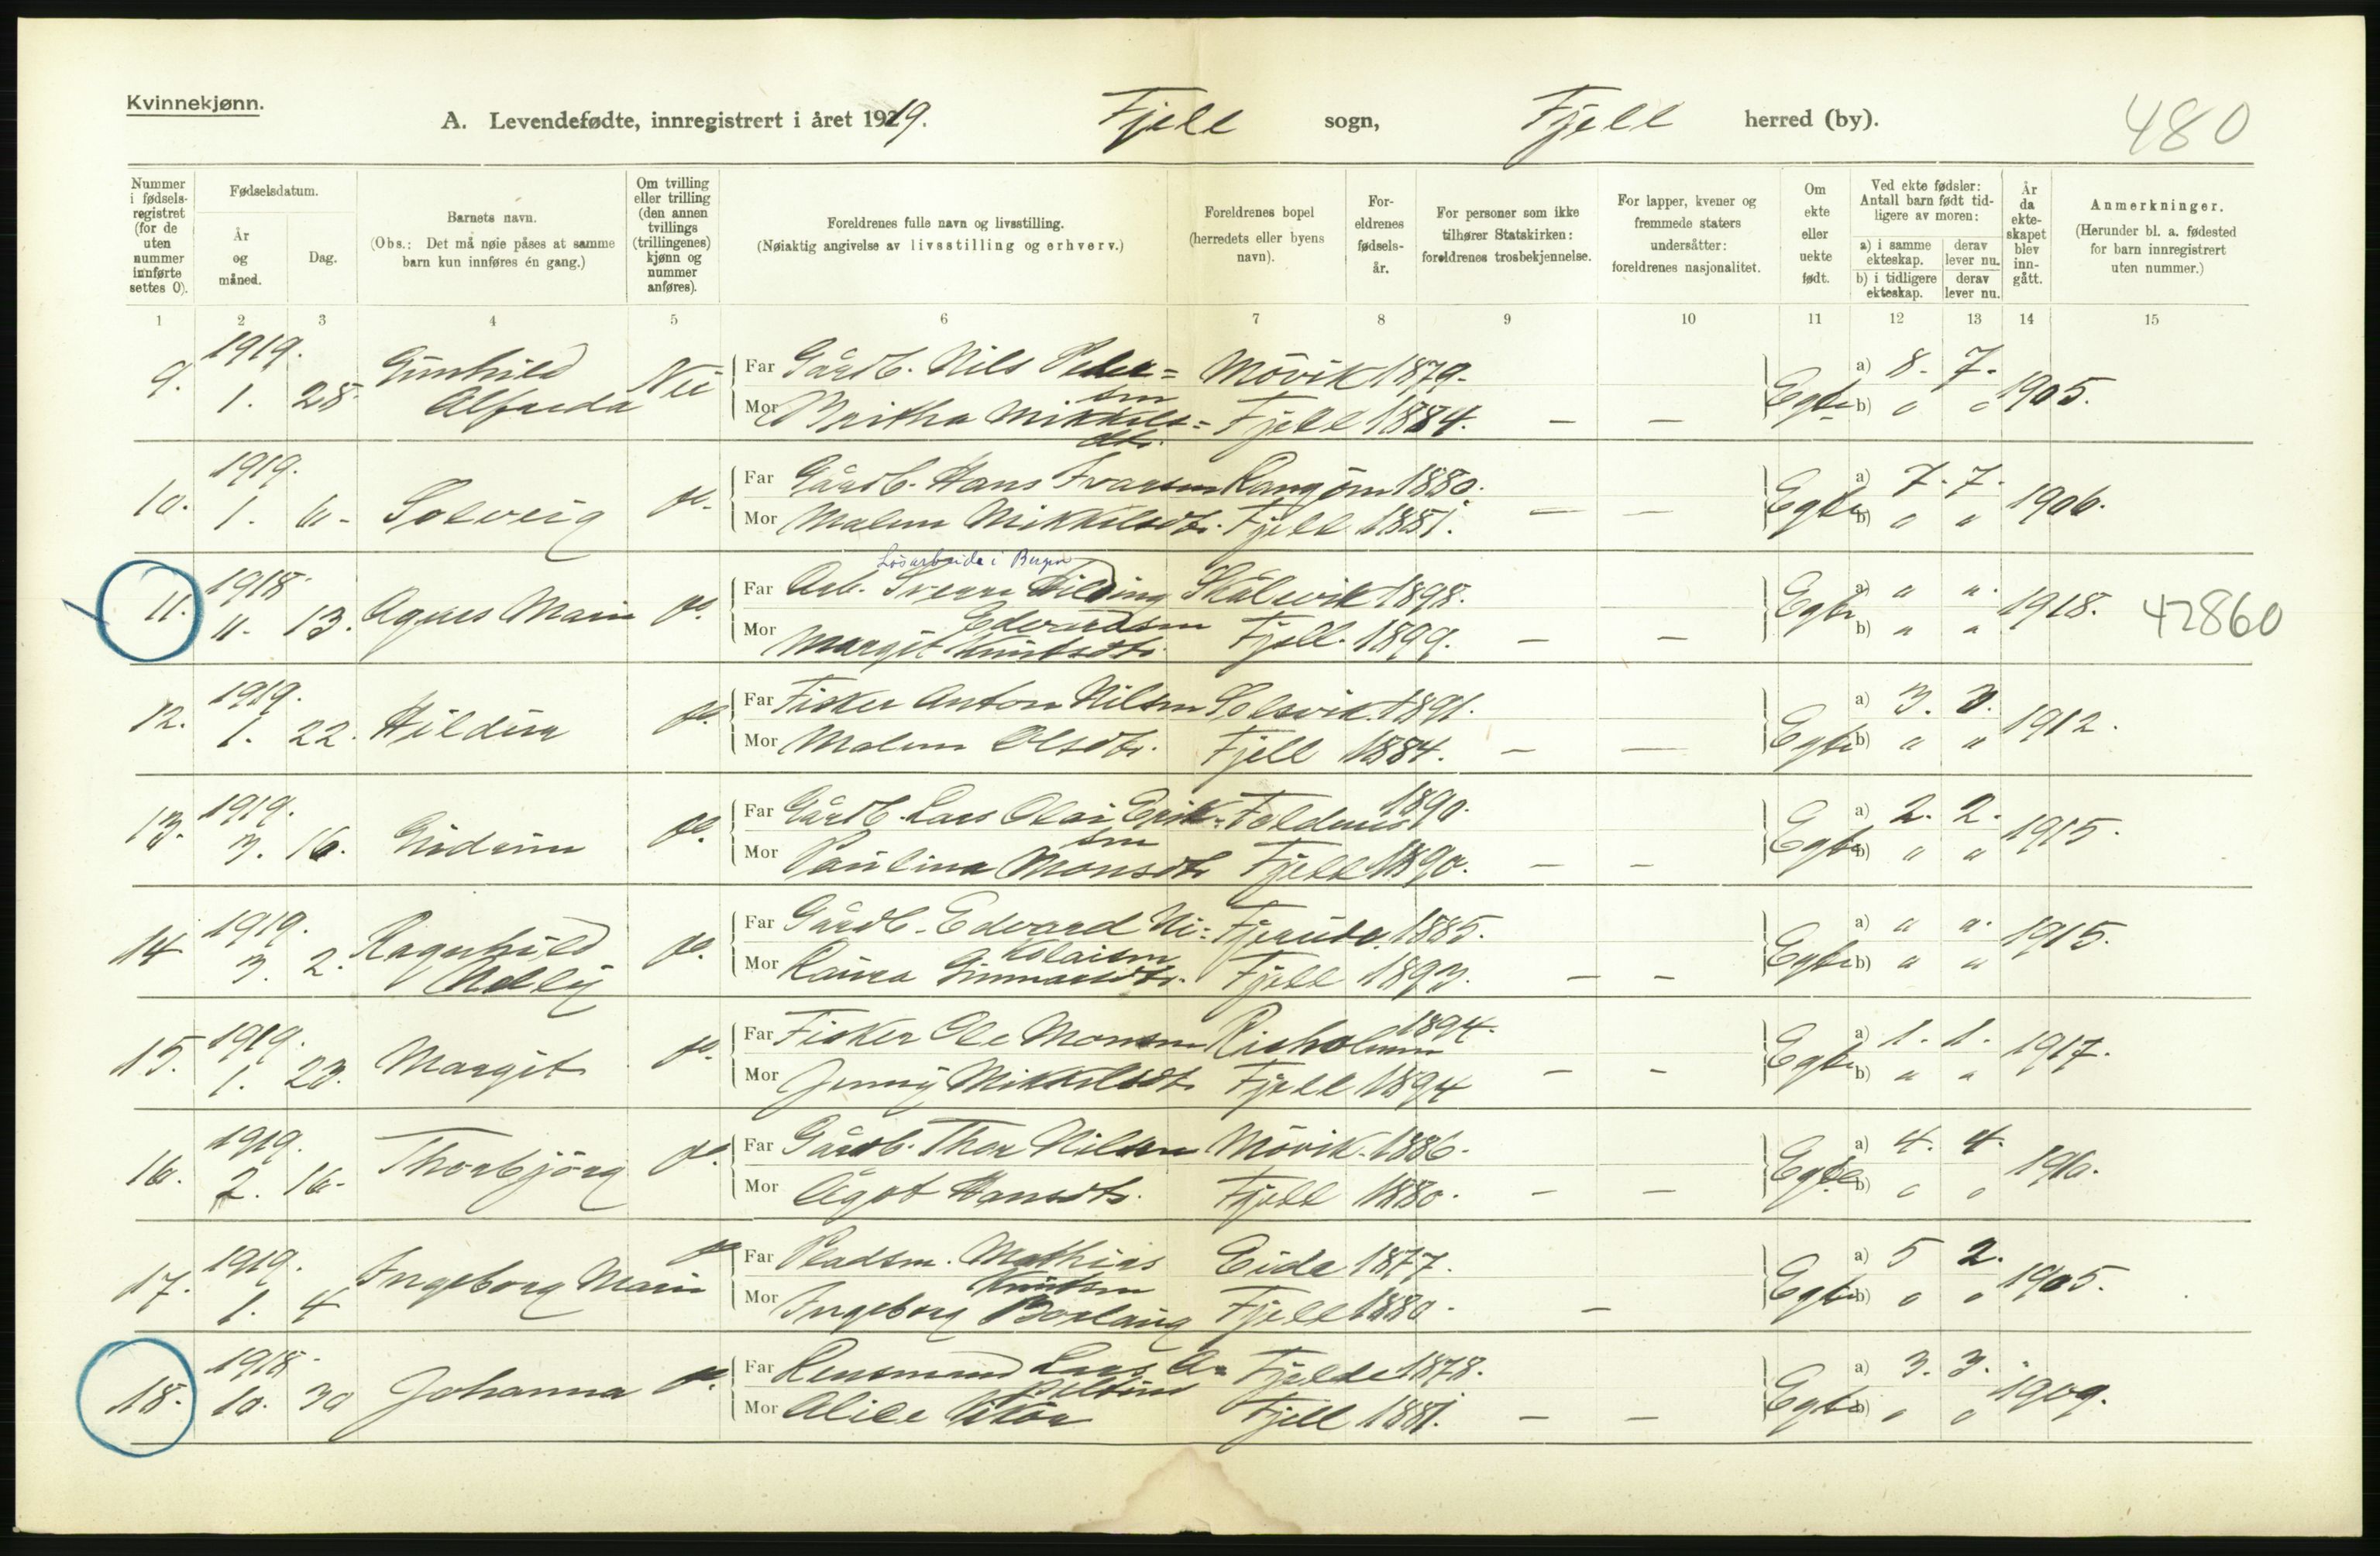 Kvinnekjønn.
A. Levendefødte, innregistrert i året 1919. Fjell sogn, Fjell herred (by). 480
Nummer i fødselsregistret (for de uten nummer innførte settes 0).
Fødselsdatum.
År og måned.
Dag.
Barnets navn.
(Obs.: Det må nøie påses at samme barn kun innføres én gang.)
Om tvilling eller trilling (den annen tvillings (trillingenes) kjønn og nummer anføres).
Foreldrenes fulle navn og livsstilling.
(Nøiaktig angivelse av livsstilling og erhverv.)
Foreldrenes bopel (herredets eller byens navn).
Foreldrenes fødselsår.
For personer som ikke tilhører Statskirken: foreldrenes trosbekjennelse.
For lapper, kvener og fremmede staters undersåtter: foreldrenes nasjonalitet.
Om ekte eller uekte født.
Ved ekte fødsler: Antall barn født tidligere av moren:
a) i samme ekteskap. derav lever nu.
b) i tidligere ekteskap. derav lever nu.
År da ekteskapet blev inngått.
Anmerkninger.
(Herunder bl. a. fødested for barn innregistrert uten nummer.)
1 2 3 4 5 6 7 8 9 10 11 12 13 14 15
9. 1919. 1. 28. Gunhild Alfreda Nei Far Gårdb. Nils Peder=sen Mövik 1879. Egte a) 8. 7. 1905.
Mor Britha Mikkels=dtr. Fjell 1884. — — b) " "
10. 1919. 1. 6. Solveig do. Far Gårdb. Hans Ivarsen Rangöen 1880. Egte a) 7. 7. 1906.
Mor Malene Mikkelsdtr. Fjell 1881. — — b) " "
Lösarbeide i Bergen
11. 1918 11. 13. Agnes Marie do. Far Arb. Sverre Hilding Edvardsen Skålevik 1898. Egte a) " " 1918. 42860
Mor Margit Knutsdtr. Fjell. 1899. — — b) " "
12. 1919. 1. 22. Hildur do. Far Fisker Anton Nilsen Solsvik. 1891. Egte a) 3. 3. 1912.
Mor Malene Olsdtr. Fjell 1884. — — b) " "
13. 1919. 3. 16. Gudrun do. Far Gårdb. Lars Olai Erik=sen Foldnes 1890. Egte a) 2. 2. 1915.
Mor Paulina Monsdtr Fjell 1890. — — b) " "
14 1919. 3. 2. Ragnhild do. Far Gårdb. Edvard Ni=kolaisen 1885. Egte a) " " 1915.
Mor Laura Gunnarsdtr. Fjell 1893. — — b) " "
15. 1919. 1. 23. Margit do. Far Fisker Ole Monsen Risholmen 1894. Egte a) 1. 1. 1917.
Mor Jenny Mikkelsdtr Fjell 1894 — — b) " "
16. 1919. 2. 16. Thorbjörg do. Far Gårdb. Thor Nilsen Mövik. 1886. Egte a) 4. 4. 1910.
Mor Ågot Hansdtr. Fjell 1880. — — b) " "
17. 1919. 1. 4 Ingeborg Marie do Far Pladsm. Mathias Knutsen Eide 1877. Egte a) 5 2. 1905.
Mor Ingeborg Fjell 1880. — b) " "
18. 1918 10. 30 Johanna do. Far Lensmand Lars Fjelde 1878. Egte a) 3. 3. 1909.
Mor Alice Fjell 1881. — — b) " "